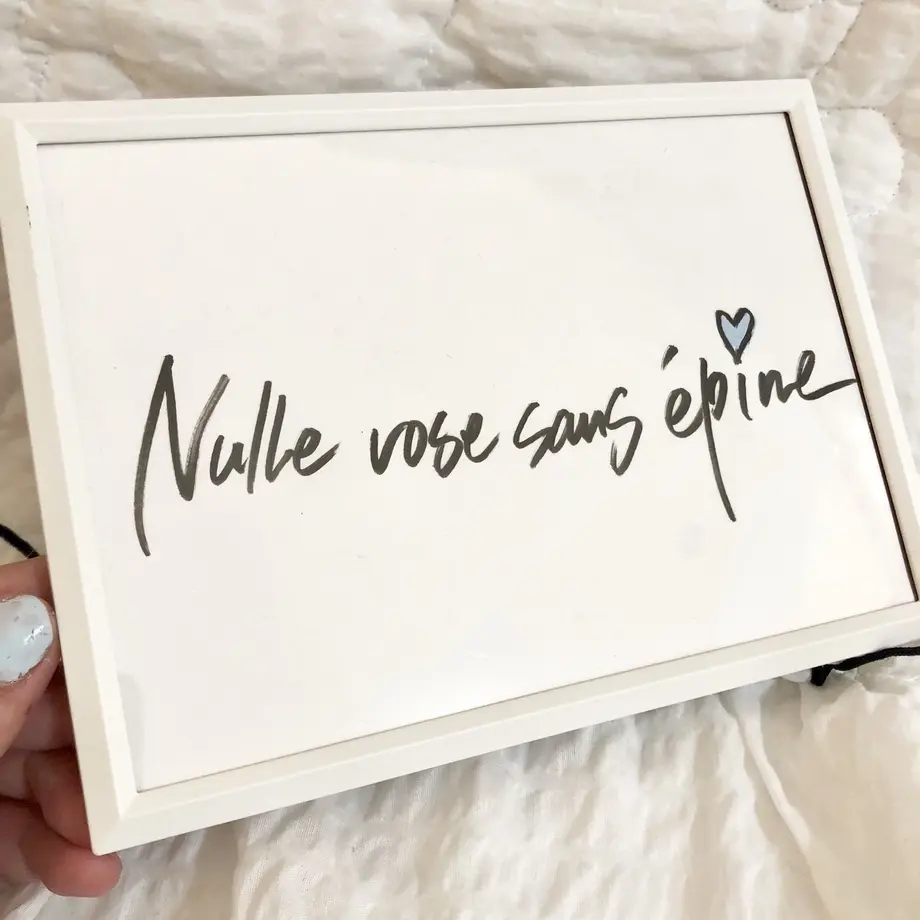 Nulle rose sans épine